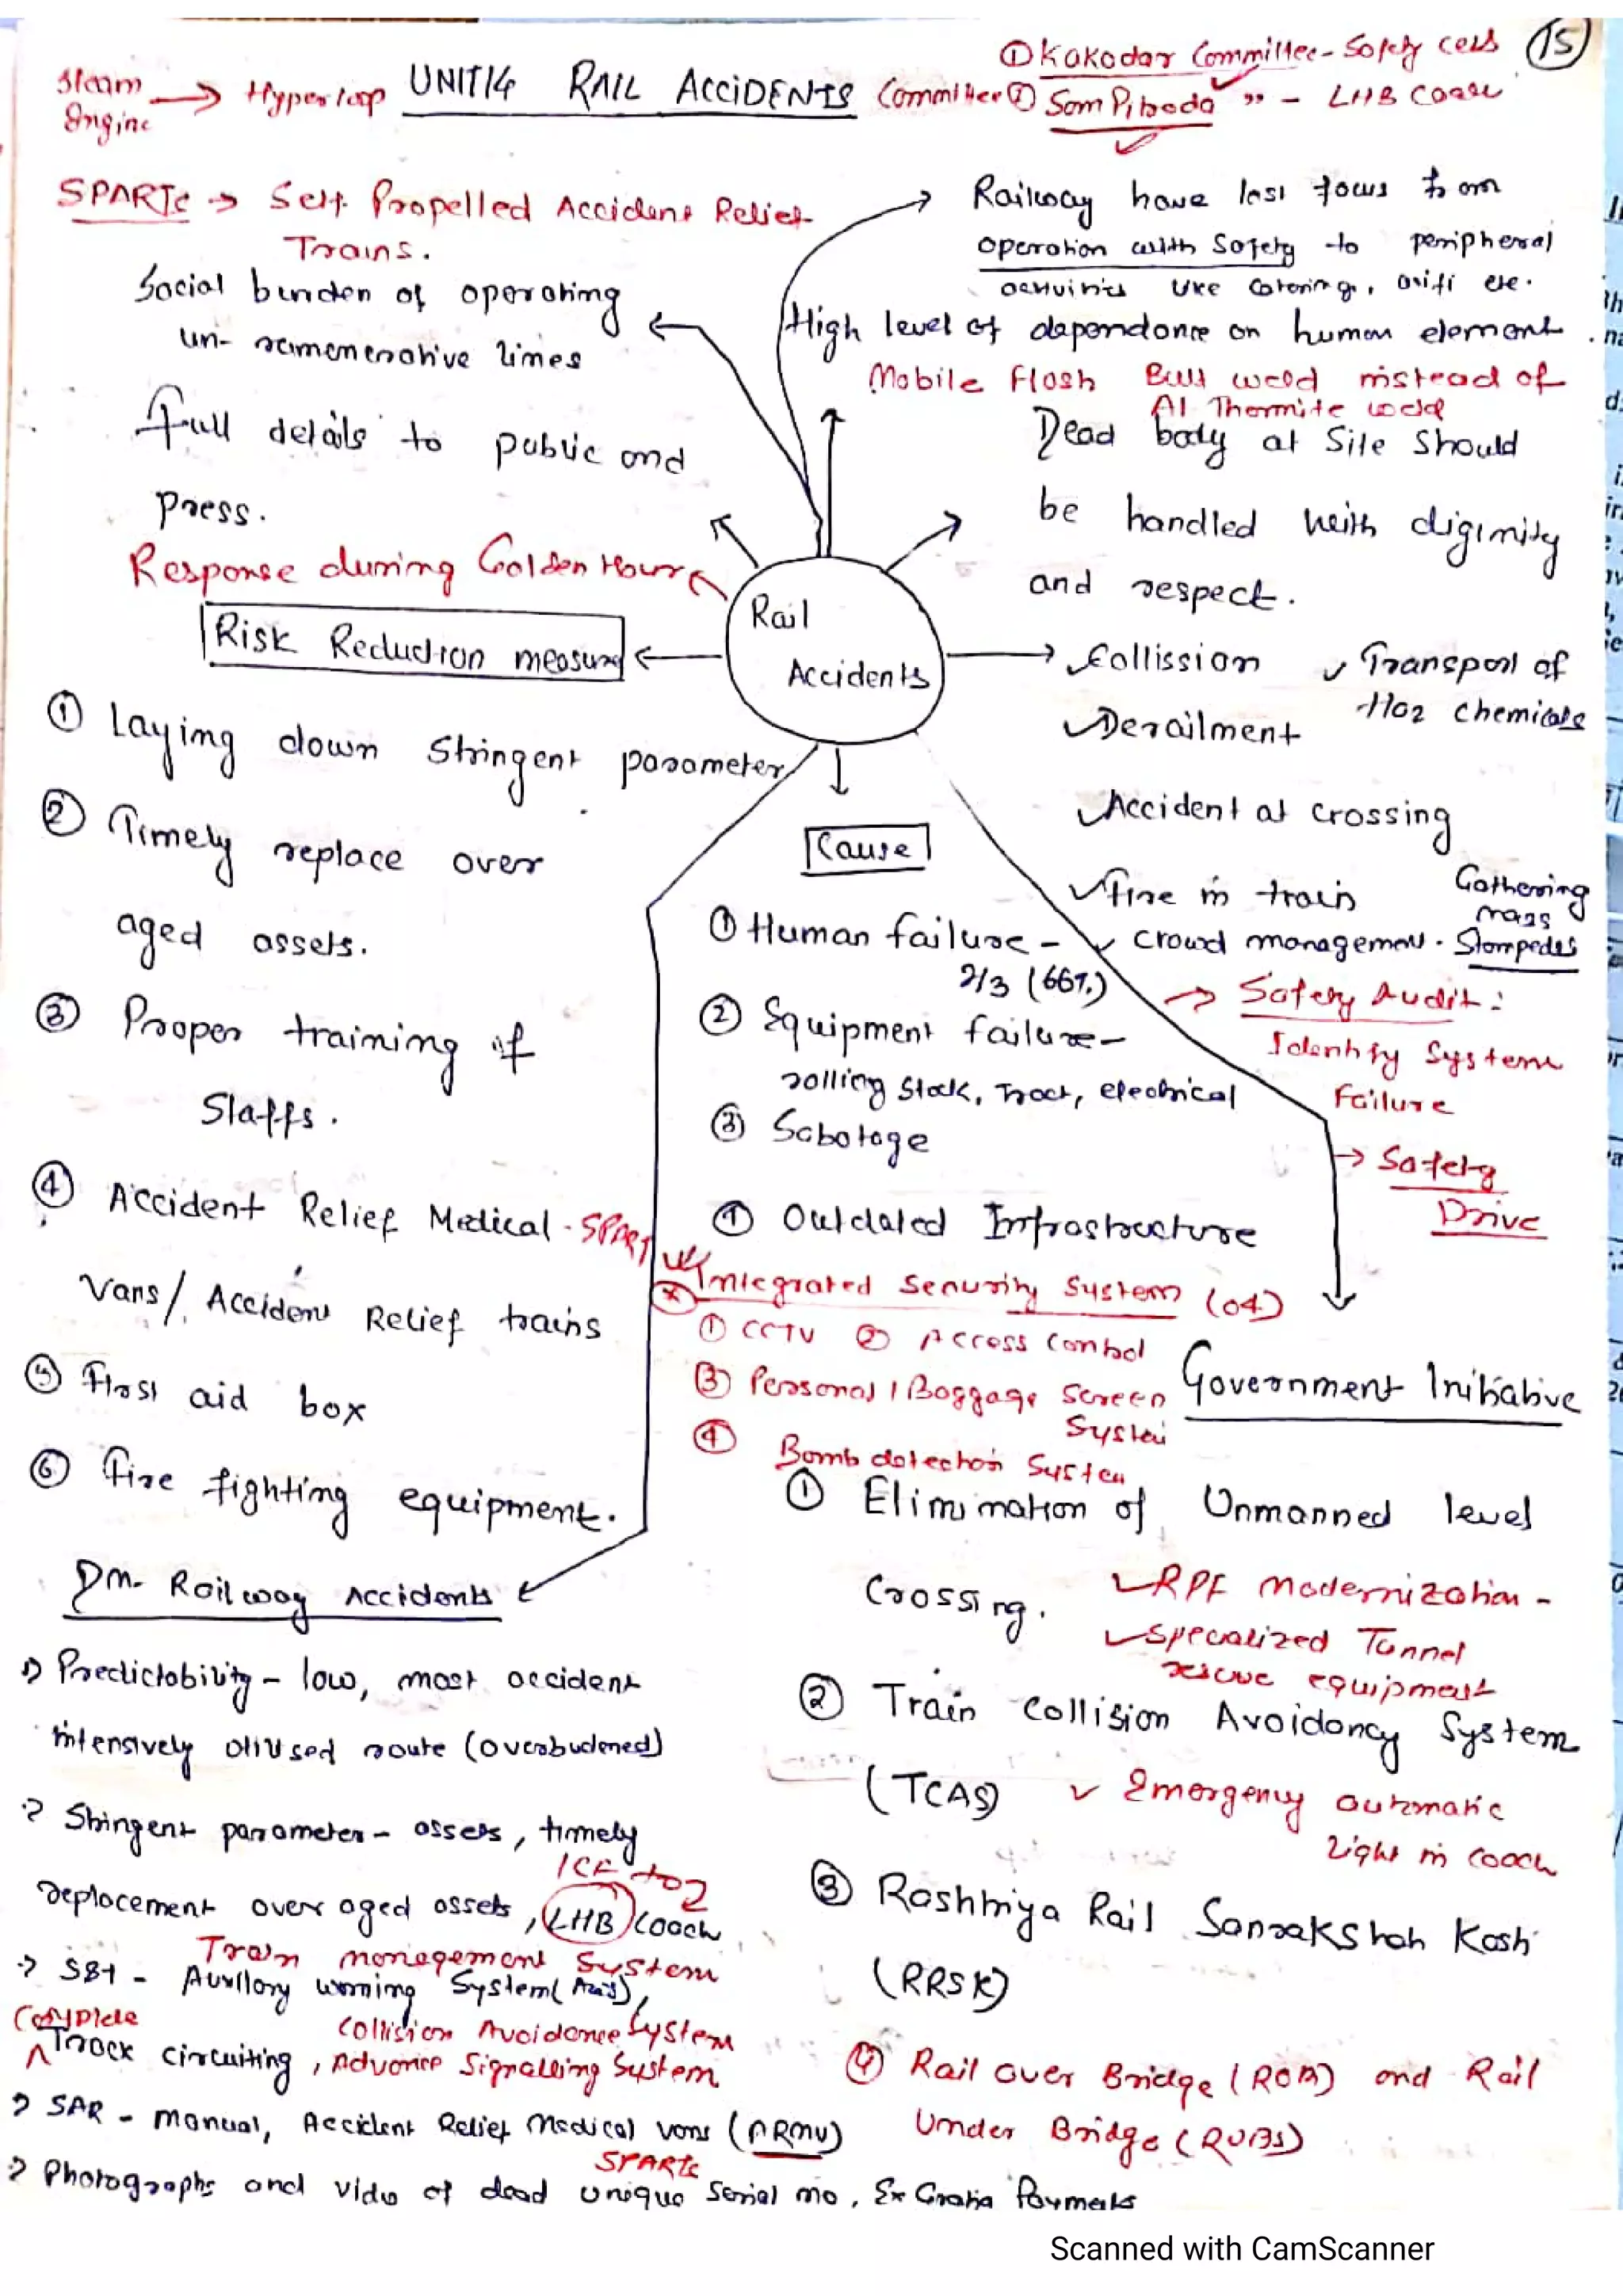 ① Kakodar Committee - Safety cess
⑮
Steam Engine → Hyperloop
UNIT 14 RAIL ACCIDENTS
Committee ② Sam Pitroda " - LHB Coach
SPARTs → Self Propelled Accident Relief
Trains.
Social burden of operating
un-remenerative lines
Full details to public and
press.
Response during Golden Hour
Railway have lost focus from
operation with Safety to peripheral
activities like Catering, wifi etc.
High level of dependance on human element
Mobile Flash Butt weld instead of
Al Thermite weld
Dead body at Site Should
be handled with diginity
and respect.
Rail
Accidents
Risk Reduction measure
① Laying down Stringent parameter
② Timely replace over
aged assets.
③ Proper training of
Staffs.
④ Accident Relief Medical - SPART
Vans/ Accident Relief trains
⑤ First aid box
⑥ Fire fighting equipment.
✓ Collission
✓ Transport of
Haz chemicals
✓ Derailment
✓ Accident at crossing
✓ Fire in train
✓ Crowd management.
Gathering
mass
Stampedes
Cause
① Human failure -
2/3 (66%)
② Equipment failure -
rolling Stock, Tract, electrical
③ Sabotage
④ Outdated Infrastructure
→ Safety Audit:
Identify System
Failure
→ Safety
Drive
Integrated Security System (04)
① CCTV ② Access Control
③ Personal / Baggage Screen
System
④ Bomb detection System
Government Initiative
① Elimination of Unmanned level
Crossing.
✓ RPF Modernization -
✓ Specialized Tunnel
rescue equipment
② Train Collision Avoidancy System
(TCAS)
✓ Emergency automatic
Light in coach
③ Rashtriya Rail Sanrakshah Kosh
(RRSK)
④ Rail over Bridge (ROB) and Rail
Under Bridge (RUBs)
DM- Railway Accidents
→ Predictability - low, most accident
intensively utilised route (overbudened)
→ Stringent parameter - assets, timely
ICF to
replacement over aged assets, LHB Coach
Train management System
Auxllary warning System
Complete
Collision Avoidance System
Track circuiting, Advance Signalling System
→ SAR - manual, Accident Relief Medical vans (ARMV)
SPARTs
→ Photographs and video of dead unique Serial no, Ex Gratia Payments
Scanned with CamScanner